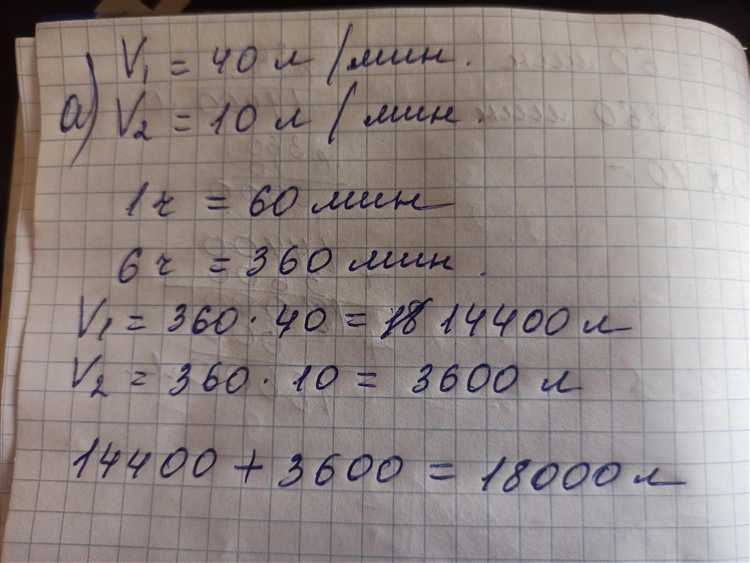 а) V₁ = 40 л/мин.
V₂ = 10 л/мин.
1 ч = 60 мин
6 ч = 360 мин.
V₁ = 360 · 40 = 14400 л
V₂ = 360 · 10 = 3600 л
14400 + 3600 = 18000 л